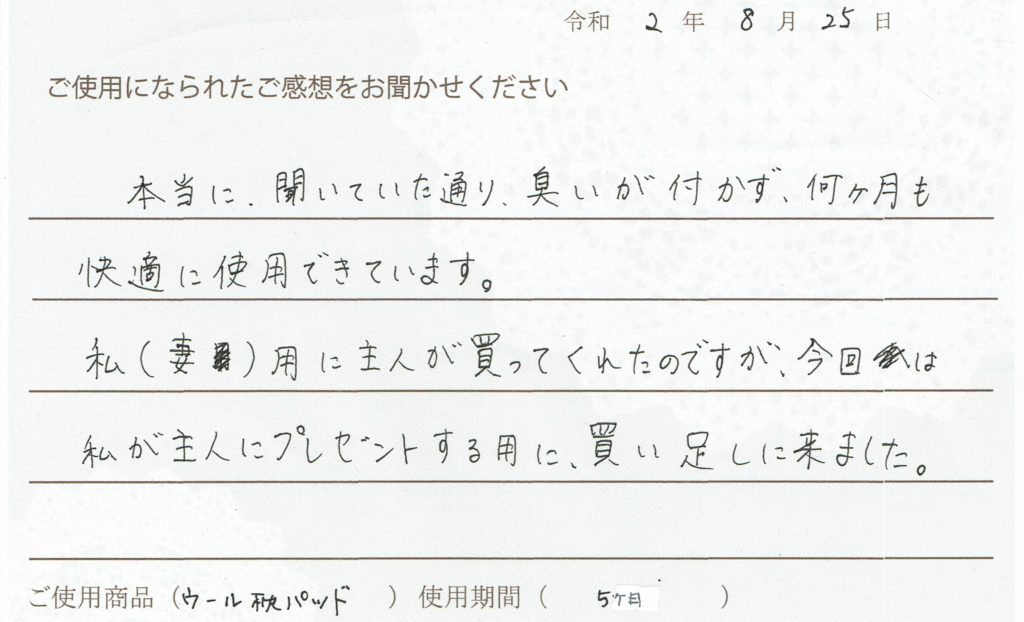 令和 2 年 8 月 25 日
ご使用になられたご感想をお聞かせください
本当に、聞いていた通り、臭いが付かず、何ヶ月も
快適に使用できています。
私(妻)用に主人が買ってくれたのですが、今回は
私が主人にプレゼントする用に、買い足しに来ました。
ご使用商品(ウール枕パッド)使用期間(5ヶ月)